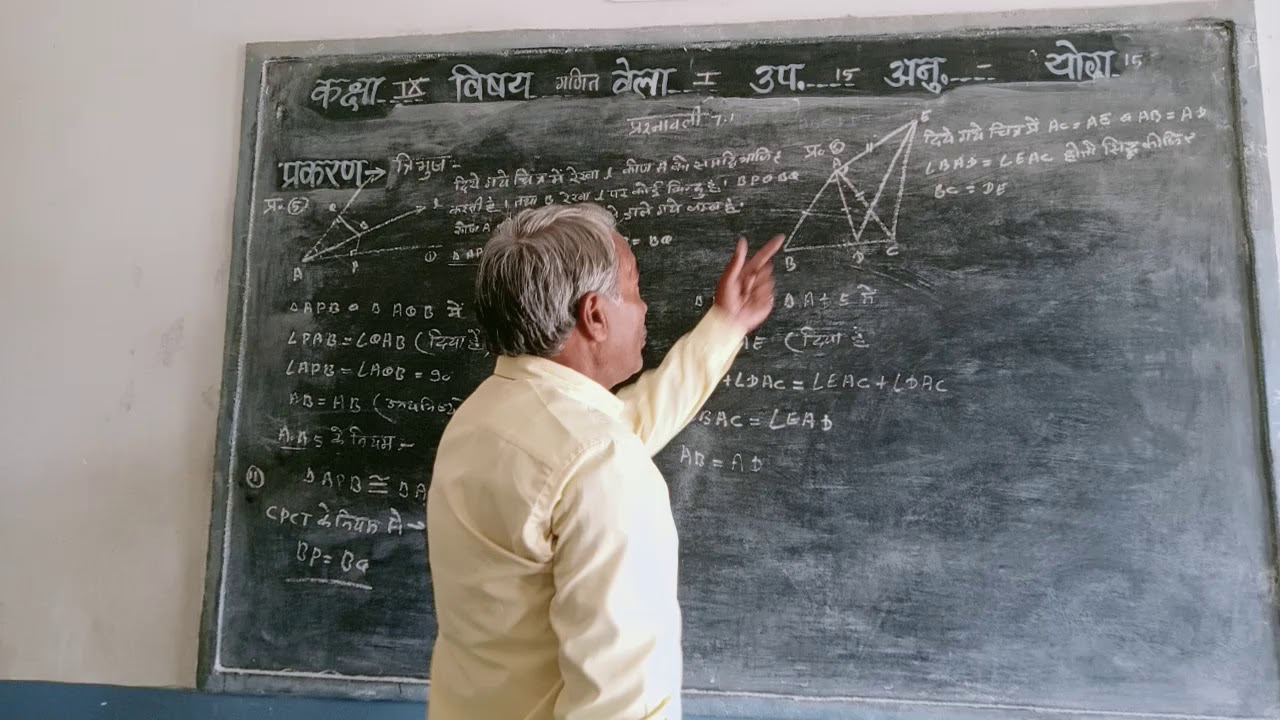 कक्षा IX विषय गणित वेला I उप. 15 अनु. - योग 15
प्रश्नावली 7.1
प्रकरण→ त्रिभुज -
प्र० ⑤
दिये गये चित्र में रेखा l कोण A को समद्विभाजित
करती है। तथा B रेखा l पर कोई बिन्दु है। BP व BQ
डाले गये लम्ब है।
= BQ
Q
B
l
A
P
①
∆APB व ∆AQB में
∠PAB = ∠QAB (दिया है)
∠APB = ∠AQB = 90
AB = AB (
A.A S के नियम :-
⑪ ∆APB ≅ ∆A
CPCT के नियम से →
BP = BQ
प्र० ⑥
E
A
B
D
C
दिये गये चित्र में AC = AE व AB = AD
∠BAD = ∠EAC हो तो सिद्ध कीजिए
BC = DE
में
AE (दिया है
+∠DAC = ∠EAC + ∠DAC
BAC = ∠EAD
AB = AD